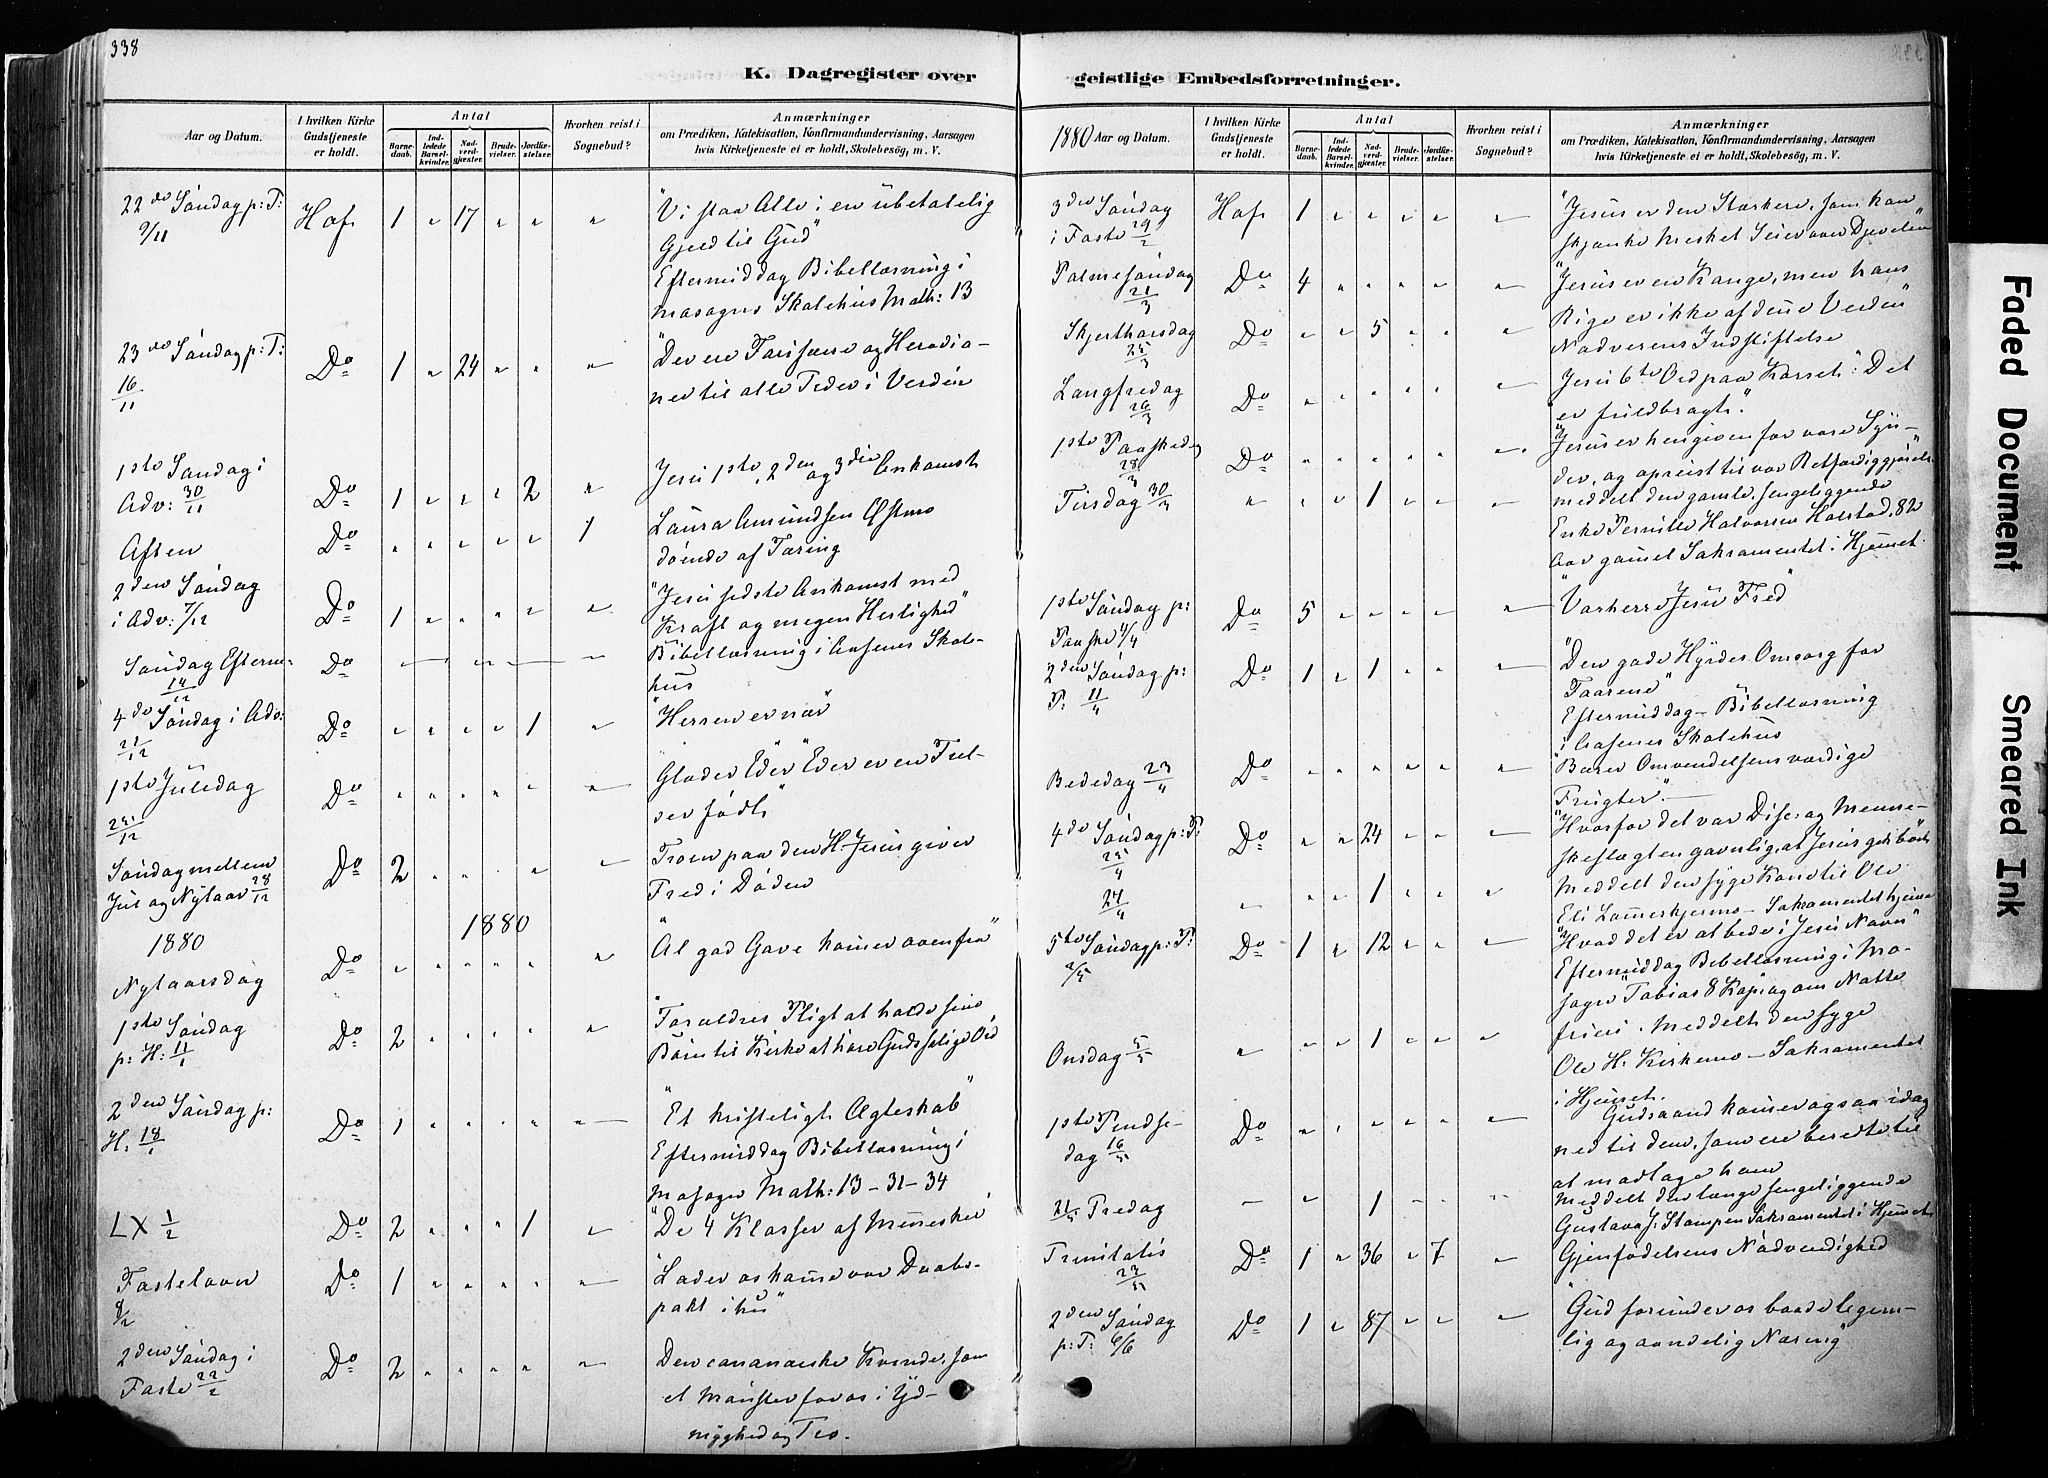 338
K. Dagregister over geistlige Embedsforretninger.
Aar og Datum.
I hvilken Kirke Gudstjeneste er holdt.
Antal
Barnedaab.
Indledede Barselkvinder.
Nadverdgjæster.
Brudevielser.
Jordfæstelser.
Hvorhen reist i Sognebud?
Anmærkninger
om Prædiken, Katekisation, Konfirmandundervisning, Aarsagen
hvis Kirketjeneste ei er holdt, Skolebesøg, m. V.
22de Søndag p: T: 9/11 Hof 1 " 17 " " " "Vi staa Alle i en ubetalelig
Gjeld til Gud"
Eftermiddag Bibellæsning i
Skolehus Math: 13
23de Søndag p: T: 16/11 Do 1 " 24 " " " "Der ere Farisæere og Herodia-
ner til alle Tider i Verden
1ste Søndag i Adv: 30/11 Do 1 " " " 2 " Jesu 1ste, 2den og 3die Ankomst
Aften Do " " " " " 1 Laura Amundsen
døende af Tæring
2den Søndag i Adv: 7/12 Do 1 " " " " " "Jesu sidste Ankomst med
Kraft og megen Herlighed"
Søndag Efterm: 14/12 Do Bibellæsning i Aasenes Skole-
hus
4de Søndag i Adv: 21/12 Do " " " " 1 " "Herren er nær"
1ste Juledag 25/12 Do " " " " " " Glæder Eder Eder er en Frel-
ser født"
Søndag mellem Jul og Nytaar 28/12 Do 2 " " " " Troen paa den H. Jesus giver
Fred i Døden
1880 1880
Nytaarsdag Do " " " " " " "Al god Gave kommer ovenfra"
1ste Søndag p: H: 11/1 Do 2 " " " " " "Forældres Pligt at holde sine
Børn til Kirke at høre Guds salige Ord
2den Søndag p: H: 18/1 Do 1 " " " " " "Et kristeligt Ægteskab"
Eftermiddag Bibellæsning i
Math: 13-31-34
LX 1/2 Do 2 " " " 1 " "De 4 Klasser af Mennesker
Fastelavn 8/2 Do 1 " " " " " "Lader os komme vor Daabs-
pakt ihu"
2den Søndag i Faste 22/2 Do 2 " " " " " Den cananæiske Kvinde, som
et Mønster for os i Yd-
myghed og Tro.
1880 Aar og Datum.
I hvilken Kirke Gudstjeneste er holdt.
Antal
Barnedaab.
Indledede Barselkvinder.
Nadverdgjæster.
Brudevielser.
Jordfæstelser.
Hvorhen reist i Sognebud?
Anmærkninger
om Prædiken, Katekisation, Konfirmandundervisning, Aarsagen
hvis Kirketjeneste ei er holdt, Skolebesøg, m. V.
3den Søndag i Faste 29/2 Hof 1 " " " " " "Jesus er den Stærkere, som kan
skjænke Mesket Seier over Djævelen"
Palmesøndag 21/3 Do 4 " " " " " "Jesus er en Konge, men hans
Rige er ikke af denne Verden"
Skjærthorsdag 25/3 Do " " 5 " " " Nadverens Indstiftelse
Langfredag 26/3 Do " " " " " " Jesu 6te Ord paa Korset: "Det
er fuldbragt."
1ste Paaskedag 28/3 Do " " " " " " "Jesus er hengiven for vore Syn-
der, og opreist til vor Retfærdiggjørelse"
Tirsdag 30/3 " " " 1 " " " meddelt den gamle, sengeliggende
Enke Pernille Halvorsen Holstad, 82
Aar gammel Sakramentet i Hjemmet.
1ste Søndag p: Paaske 4/4 Do 5 " " " " " "Vor herre Jesu Fred"
2den Søndag p: P: 11/4 Do 1 " 1 " " " "Den gode Hyrdes Omsorg for
Faarene"
Eftermiddag - Bibellæsning
i Aasenes Skolehus
Bededag 23/4 Do " " " " " " "Bærer Omvendelsens værdige
Frugter."
4de Søndag p: P: 25/4 Do " " 24 " " " "Hvorfor det var Disc: og Menne-
skeslægten gavnlig, at Jesus gik bort
27/4 " " " 1 " " " Meddelt den syge Kone til Ole
Eli - Sakramentet hjemme
5te Søndag p: P: 2/5 Do 1 " 12 " " " "Hvad det er at bede i Jesu Navn"
Eftermiddag Bibellæsning i
Tobias 8 Kap: og om Natte
frieri.
Onsdag 5/5 " " " 1 " " " Meddelt den syge
Ole H. Kirkemo - Sakramentet
i Hjemmet.
1ste Pindsedag 16/5 Do " " " " " " Gudsaand kommer ogsaa idag
ned til dem, som ere beredte til
at modtage ham
21/5 Fredag " " " 1 " " " meddelt den længe sengeliggende
Gustava J. Stampen Sakramentet i Hjemmet
Trinitatis 23/5 Do 1 " 36 " 7 " Gjenfødelsens Nødvendighed
2den Søndag p: T: 6/6 Do 1 " 87 " " " "Gud forunder os baade legem-
lig og aandelig Næring"
Faded Document
Smeared Ink